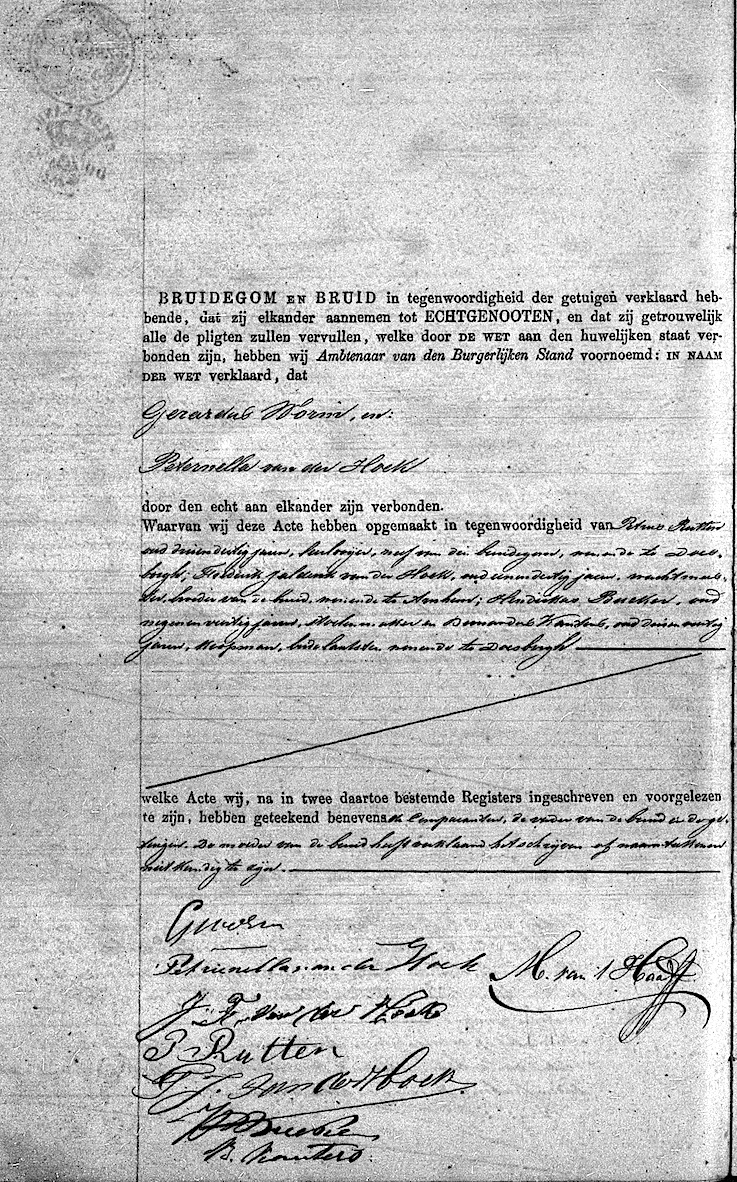 BRUIDEGOM EN BRUID in tegenwoordigheid der getuigen verklaard heb-
bende, dat zij elkander aannemen tot ECHTGENOOTEN, en dat zij getrouwelijk
alle de pligten zullen vervullen, welke door DE WET aan den huwelijken staat ver-
bonden zijn, hebben wij Ambtenaar van den Burgerlijken Stand voornoemd: IN NAAM
DER WET verklaard, dat
Gerardus Worm, en:
Peternella van der Hoek
door den echt aan elkander zijn verbonden.
Waarvan wij deze Acte hebben opgemaakt in tegenwoordigheid van Petrus Rutten
oud drieendertig jaren, horlogier, neef van den bruidegom, wonende te Does-
burgh; Frederik van der Hoek, oud eenendertig jaren, wachtmees-
ter, broeder van de bruid, wonende te Arnhem; Hendrikus, oud
negenenveertig jaren, stoelenmaker en Bernardus Kanters, oud
jaren, koopman, beide laatsten wonende te Doesburgh
welke Acte wij, na in twee daartoe bestemde Registers ingeschreven en voorgelezen
te zijn, hebben geteekend benevens de Comparanten, de vader van de bruid en de ge-
tuigen. De moeder van de bruid heeft verklaard het schrijven of naamteekenen
niet kundig te zijn.
G Worm
Petrienella van der Hoek M. van 't Haaff
J. F. van der Hoek
P. Rutten
F. J. van der Hoek
B. Kanters.